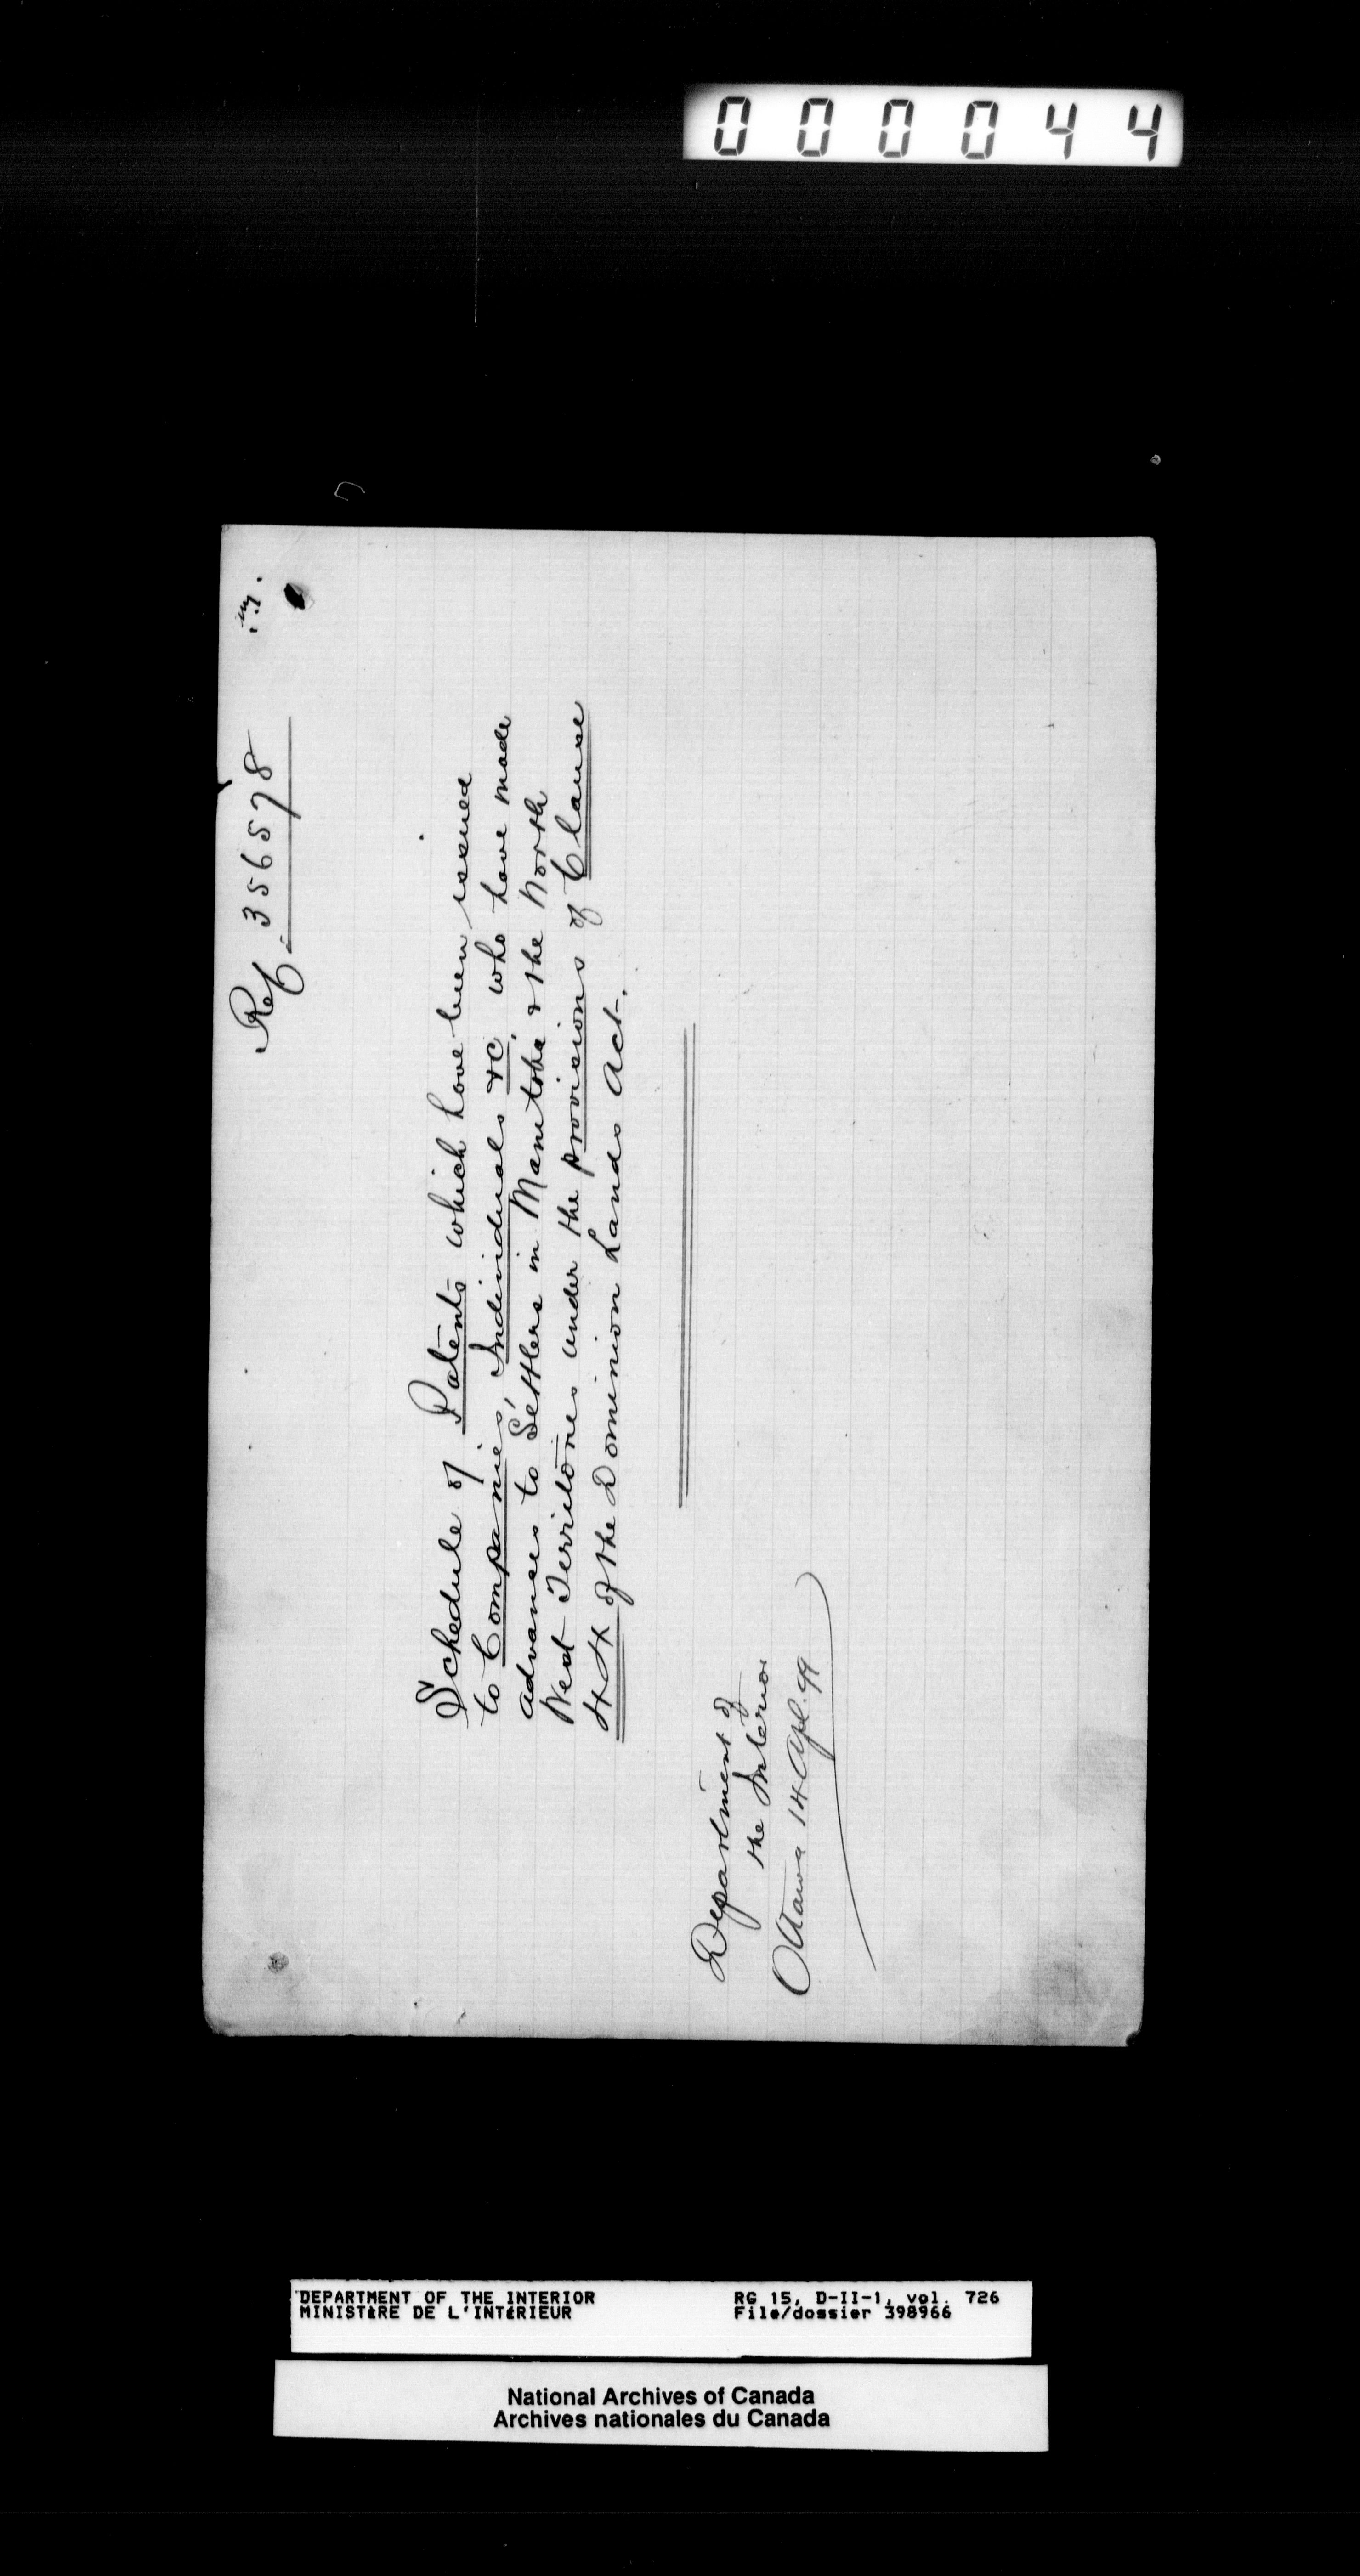 000044
Ref. 356578
Schedule of Patents which have been issued
to Companies, Individuals &c, who have made
advances to Settlers in Manitoba & the North
West Territories under the provisions of Clause
44 of the Dominion Lands Act.
Department of
the Interior
Ottawa 14 Apl. 99
DEPARTMENT OF THE INTERIOR
MINISTÈRE DE L'INTÉRIEUR
RG 15, D-II-1, vol. 726
File/dossier 398966
National Archives of Canada
Archives nationales du Canada